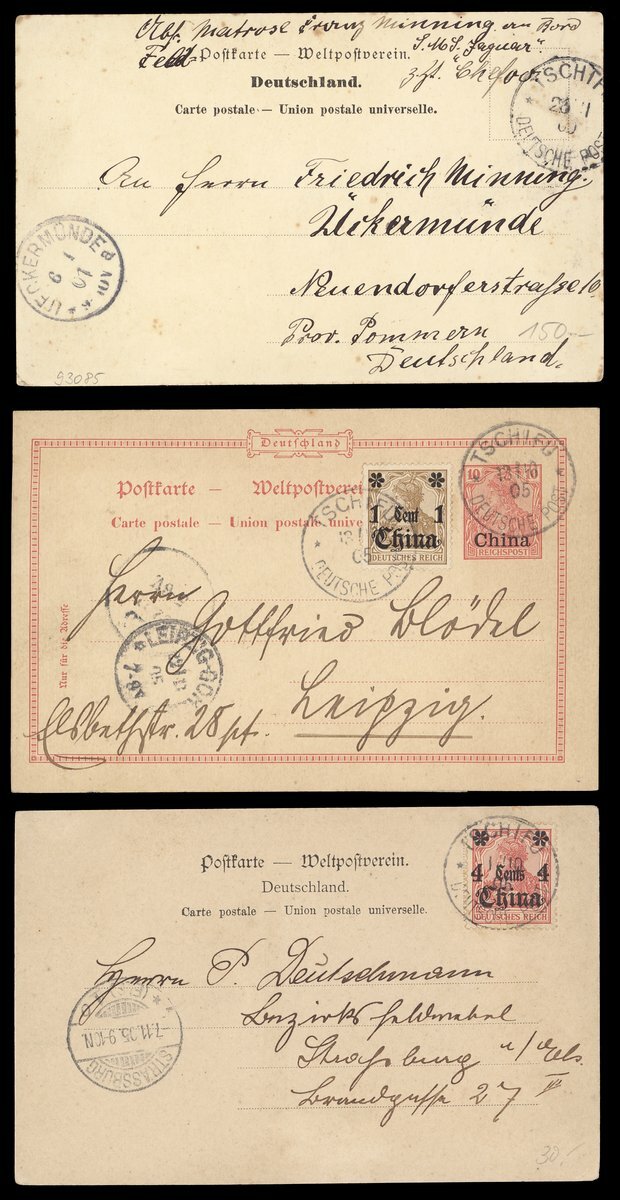 Abs. Matrose Franz Minning an Bord
S.M.S. "Jaguar"
z. Zt. "Chefoo"
Feld- Postkarte — Weltpostverein.
Deutschland.
Carte postale — Union postale universelle.
TSCHIFU
DEUTSCHE POST
An Herrn Friedrich Minning.
Ückermünde
Neuendorferstrasse 10
Prov. Pommern
Deutschland.
UECKERMÜNDE
150.—
93085
Deutschland
Postkarte — Weltpostverein
Carte postale — Union postale unive
10
China
REICHSPOST
1 Cent 1
China
DEUTSCHES REICH
TSCHIFU
05
DEUTSCHE POST
TSCHIFU
05
DEUTSCHE POST
Nur für die Adresse
Herrn
Gottfried Blödel
Leipzig.
Elsbethstr. 28 pt.
LEIPZIG-GOH
05
Postkarte — Weltpostverein.
Deutschland.
Carte postale — Union postale universelle.
TSCHIFU
4 Cents 4
China
DEUTSCHES REICH
Herrn P. Deutschmann
Bezirksfeldwebel
Straßburg i/Els.
Brandgasse 27 IV
STRASSBURG
7.11.05.9-10N.
30.-